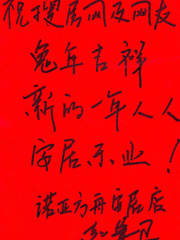 祝搜居网及网友
兔年吉祥
新的一年人人
安居乐业！
诺亚方舟安居店